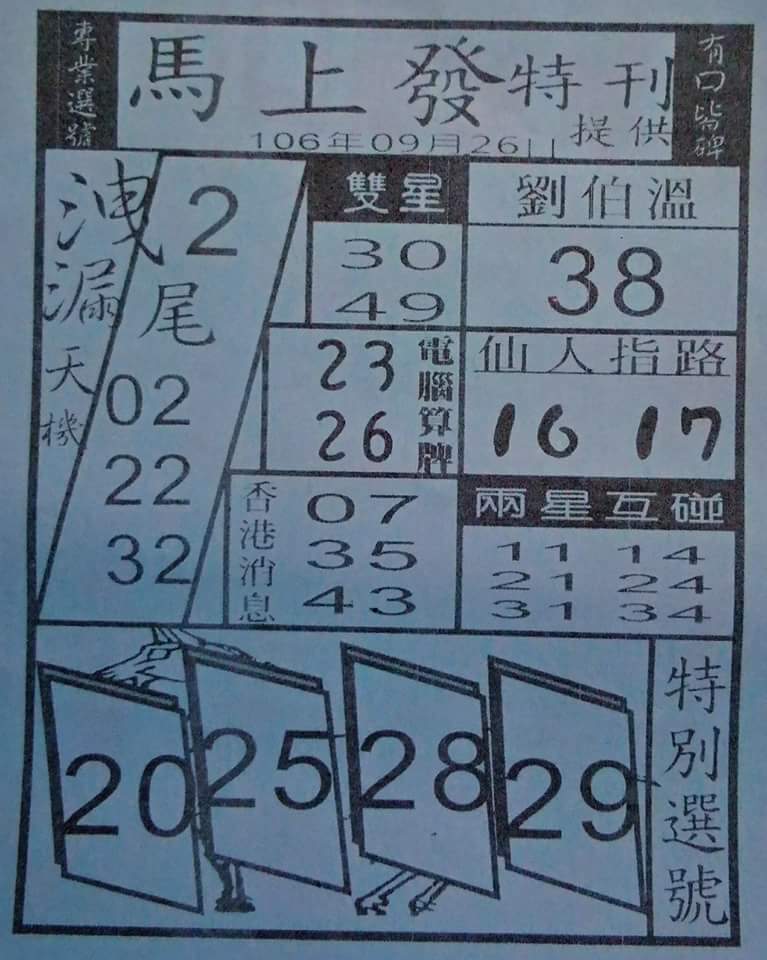 專業選號
馬上發特刊
提供
106年09月26日
有口皆碑
洩漏天機
2
尾
02
22
32
雙星
30
49
劉伯溫
38
23
26
電腦算牌
仙人指路
16 17
香港消息
07
35
43
兩星互碰
11 14
21 24
31 34
20 25 28 29
特別選號